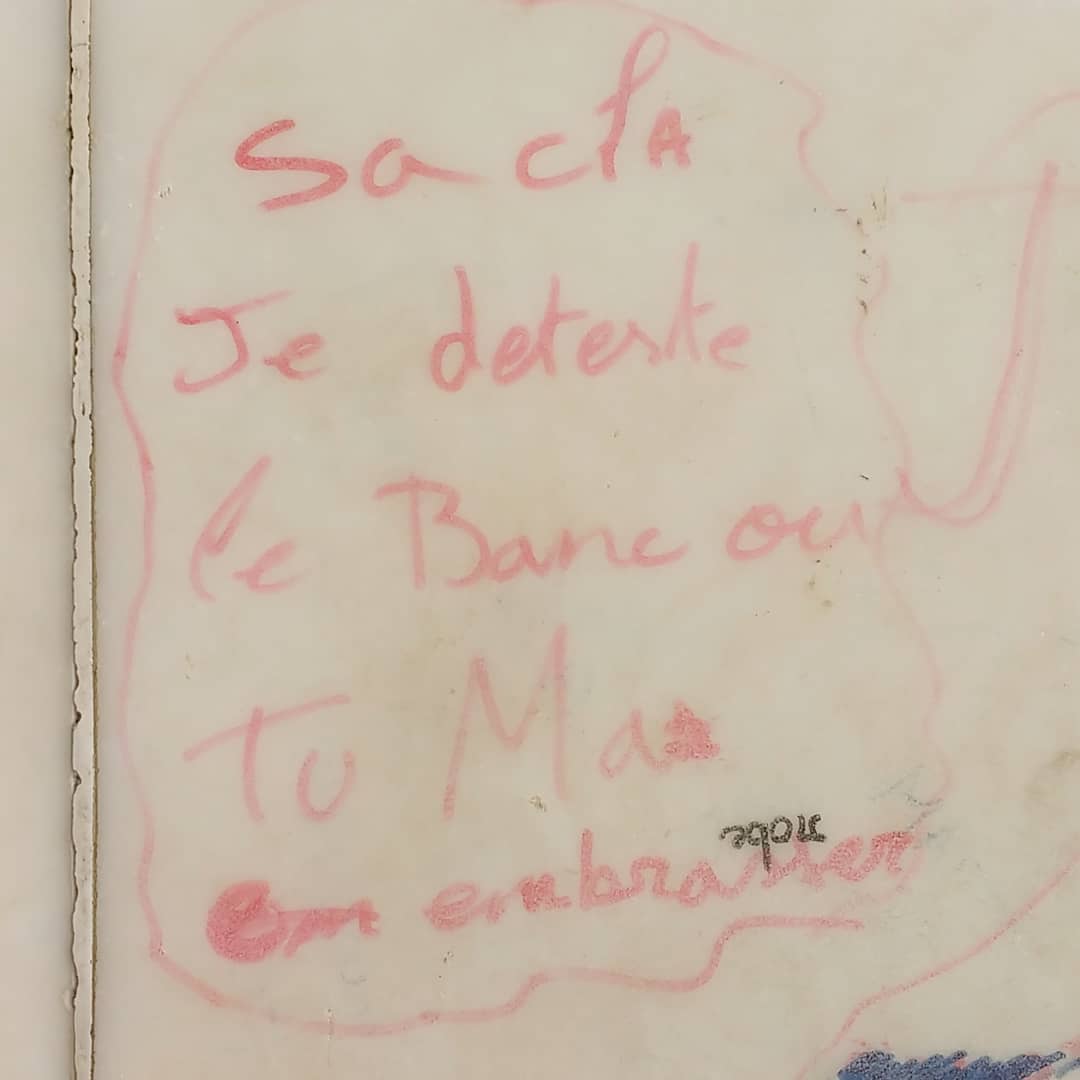 Sa clA
Je deteste
le Banc ou
Tu Ma
embrasser